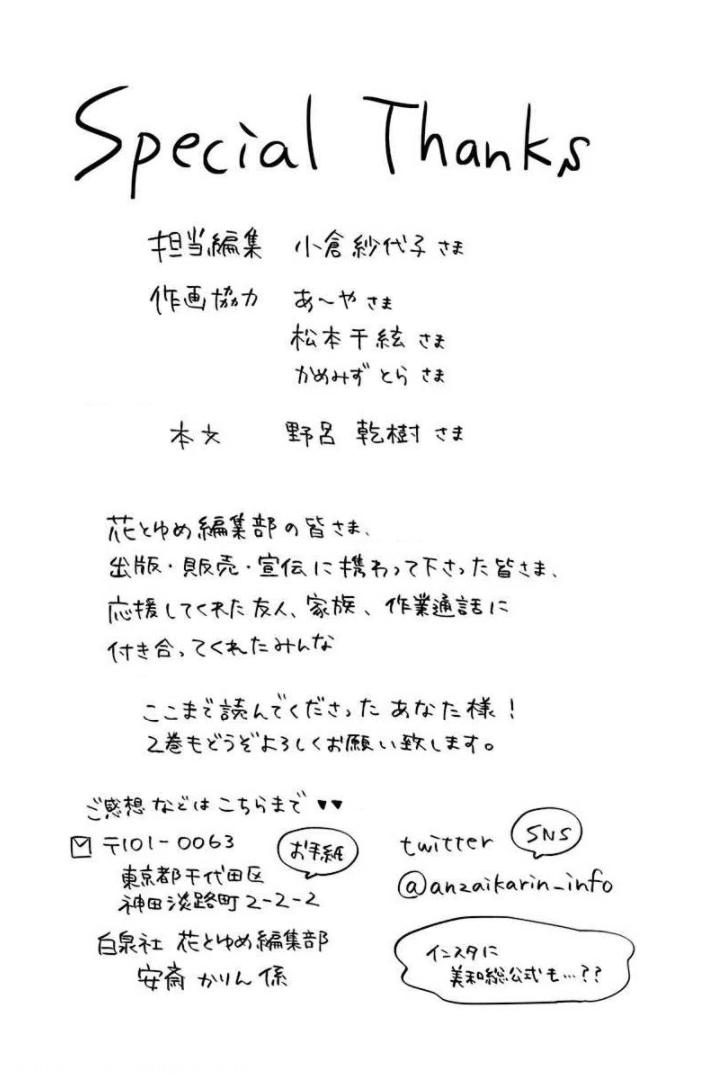 Special Thanks
担当編集 小倉紗代子さま
作画協力 あ〜やさま
松本千絃さま
かめみずとらさま
本文 野呂 乾樹さま
花とゆめ編集部の皆さま、
出版・販売・宣伝に携わって下さった皆さま、
応援してくれた友人、家族、作業通話に
付き合ってくれたみんな
ここまで読んでくださったあなた様!
2巻もどうぞよろしくお願い致します。
ご感想などはこちらまで♥♥
〒101-0063
お手紙
東京都千代田区
神田淡路町2-2-2
白泉社 花とゆめ編集部
安斎かりん係
twitter
SNS
@anzaikarin_info
インスタに
美和総公式も…??